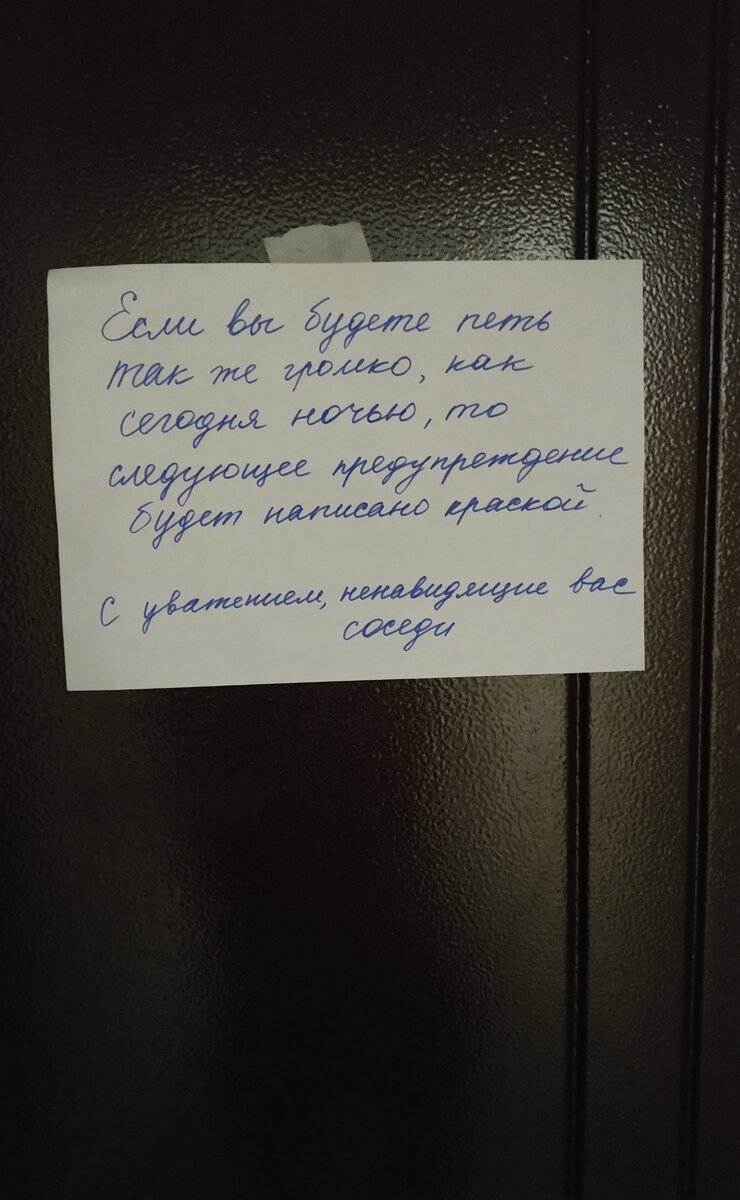 Если вы будете петь
так же громко, как
сегодня ночью, то
следующее предупреждение
будет написано краской.
С уважением, ненавидящие вас
соседи